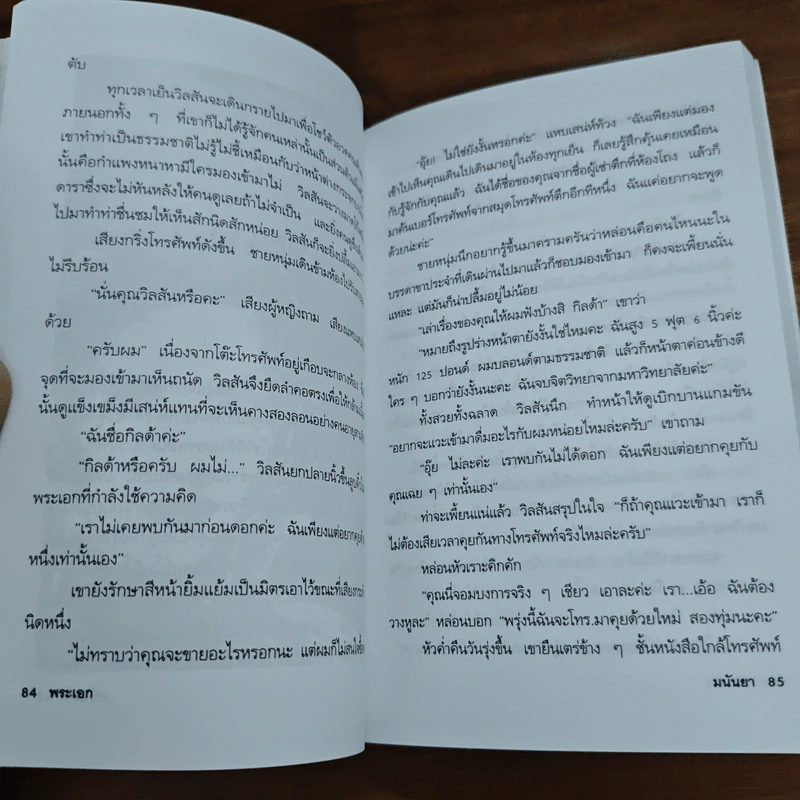 ตับ
ทุกเวลาเย็นวิลสันจะเดินกรายไปมาเพื่อโชว์ตัวอวดคน
ภายนอกทั้ง ๆ ที่เขาก็ไม่ได้รู้จักคนเหล่านั้นเป็นส่วนตัว
เขาทำท่าเป็นธรรมชาติไม่รู้ไม่ชี้เหมือนกับว่าหน้าต่างกระจก
นั้นคือกำแพงหนาหามีใครมองเข้ามาไม่ วิลสันจะวางมาด
ดาราซึ่งจะไม่หันหลังให้คนดูเลยถ้าไม่จำเป็น และยิ่งคนดู
ไปมาทำท่าชื่นชมให้เห็นสักนิดสักหน่อย วิลสันก็จะยิ่งปลื้ม
เสียงกริ่งโทรศัพท์ดังขึ้น ชายหนุ่มเดินข้ามห้องไปรับ
ไม่รีบร้อน
“นั่นคุณวิลสันหรือคะ” เสียงผู้หญิงถาม เสียง
ด้วย
“ครับผม” เนื่องจากโต๊ะโทรศัพท์อยู่เกือบจะกลางห้อง
จุดที่จะมองเข้ามาเห็นถนัด วิลสันจึงยืดลำคอตรงเพื่อให้
นั้นดูแข็งเข้มมีเสน่ห์แทนที่จะเห็นคางสองลอนอย่างคนอายุ
“ฉันชื่อกิลด้าค่ะ”
“กิลด้าหรือครับ ผมไม่...” วิลสันยกปลายนิ้วขึ้น
พระเอกที่กำลังใช้ความคิด
“เราไม่เคยพบกันมาก่อนดอกค่ะ ฉันเพียงแต่อยากคุย
หนึ่งเท่านั้นเอง”
เขายังรักษาสีหน้ายิ้มแย้มเป็นมิตรเอาไว้ขณะที่เสียง
นิดหนึ่ง
“ไม่ทราบว่าคุณจะขายอะไรหรอกนะ แต่ผมก็ไม่สนใจ
84 พระเอก
“อุ๊ย! ไม่ใช่ยังงั้นหรอกค่ะ” แทบเสน่ห์ท้วง “ฉันเพียงแต่มอง
เข้าไปเห็นคุณเดินไปเดินมาอยู่ในห้องทุกเย็น ก็เลยรู้สึกคุ้นเคยเหมือน
กับรู้จักกับคุณแล้ว ฉันได้ชื่อของคุณจากชื่อผู้เช่าตึกที่ห้องโถง แล้วก็
มาค้นเบอร์โทรศัพท์จากสมุดโทรศัพท์ตึกอีกทีหนึ่ง ฉันแค่อยากจะพูด
ด้วยน่ะค่ะ”
ชายหนุ่มนึกอยากรู้ขึ้นมาครามครันว่าหล่อนคือคนไหนนะใน
บรรดาขาประจำที่เดินผ่านไปมาแล้วก็ชอบมองเข้ามา ก็คงจะเพี้ยนนั่น
แหละ แต่มันก็น่าปลื้มอยู่ไม่น้อย
“เล่าเรื่องของคุณให้ผมฟังบ้างสิ กิลด้า” เขาว่า
“หมายถึงรูปร่างหน้าตายังงั้นใช่ไหมคะ ฉันสูง 5 ฟุต 6 นิ้วค่ะ
หนัก 125 ปอนด์ ผมบลอนด์ตามธรรมชาติ แล้วก็หน้าตาค่อนข้างดี
ใคร ๆ บอกว่ายังงั้นนะคะ ฉันจบจิตวิทยาจากมหาวิทยาลัยค่ะ”
ทั้งสวยทั้งฉลาด วิลสันนึก ทำหน้าให้ดูเบิกบานแกมขัน
“อยากจะแวะเข้ามาดื่มอะไรกับผมหน่อยไหมล่ะครับ” เขาถาม
“อุ๊ย ไม่ละค่ะ เราพบกันไม่ได้ดอก ฉันเพียงแต่อยากคุยกับ
คุณเฉย ๆ เท่านั้นเอง”
ท่าจะเพี้ยนแน่แล้ว วิลสันสรุปในใจ “ก็ถ้าคุณแวะเข้ามา เราก็
ไม่ต้องเสียเวลาคุยกันทางโทรศัพท์จริงไหมล่ะครับ”
หล่อนหัวเราะคิกคัก
“คุณนี่จอมบงการจริง ๆ เชียว เอาละค่ะ เรา...เอ้อ ฉันต้อง
วางหูละ” หล่อนบอก “พรุ่งนี้ฉันจะโทร.มาคุยด้วยใหม่ สองทุ่มนะคะ”
หัวค่ำคืนวันรุ่งขึ้น เขายืนเตร่ข้าง ๆ ชั้นหนังสือใกล้โทรศัพท์
มนันยา 85